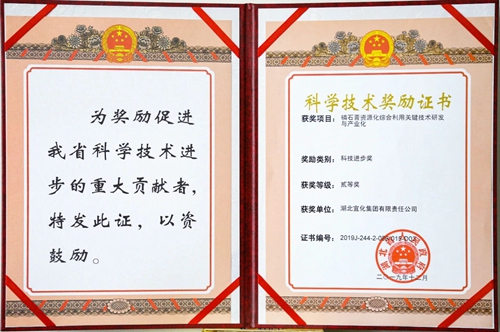 为奖励促进
我省科学技术进
步的重大贡献者，
特发此证，以资
鼓励。
科学技术奖励证书
获奖项目：磷石膏资源化综合利用关键技术研发
与产业化
奖励类别：科技进步奖
获奖等级：贰等奖
获奖单位：湖北宜化集团有限责任公司
证书编号：2019J-244-2-095-019-D02
湖北省人民政府
二〇一九年十二月